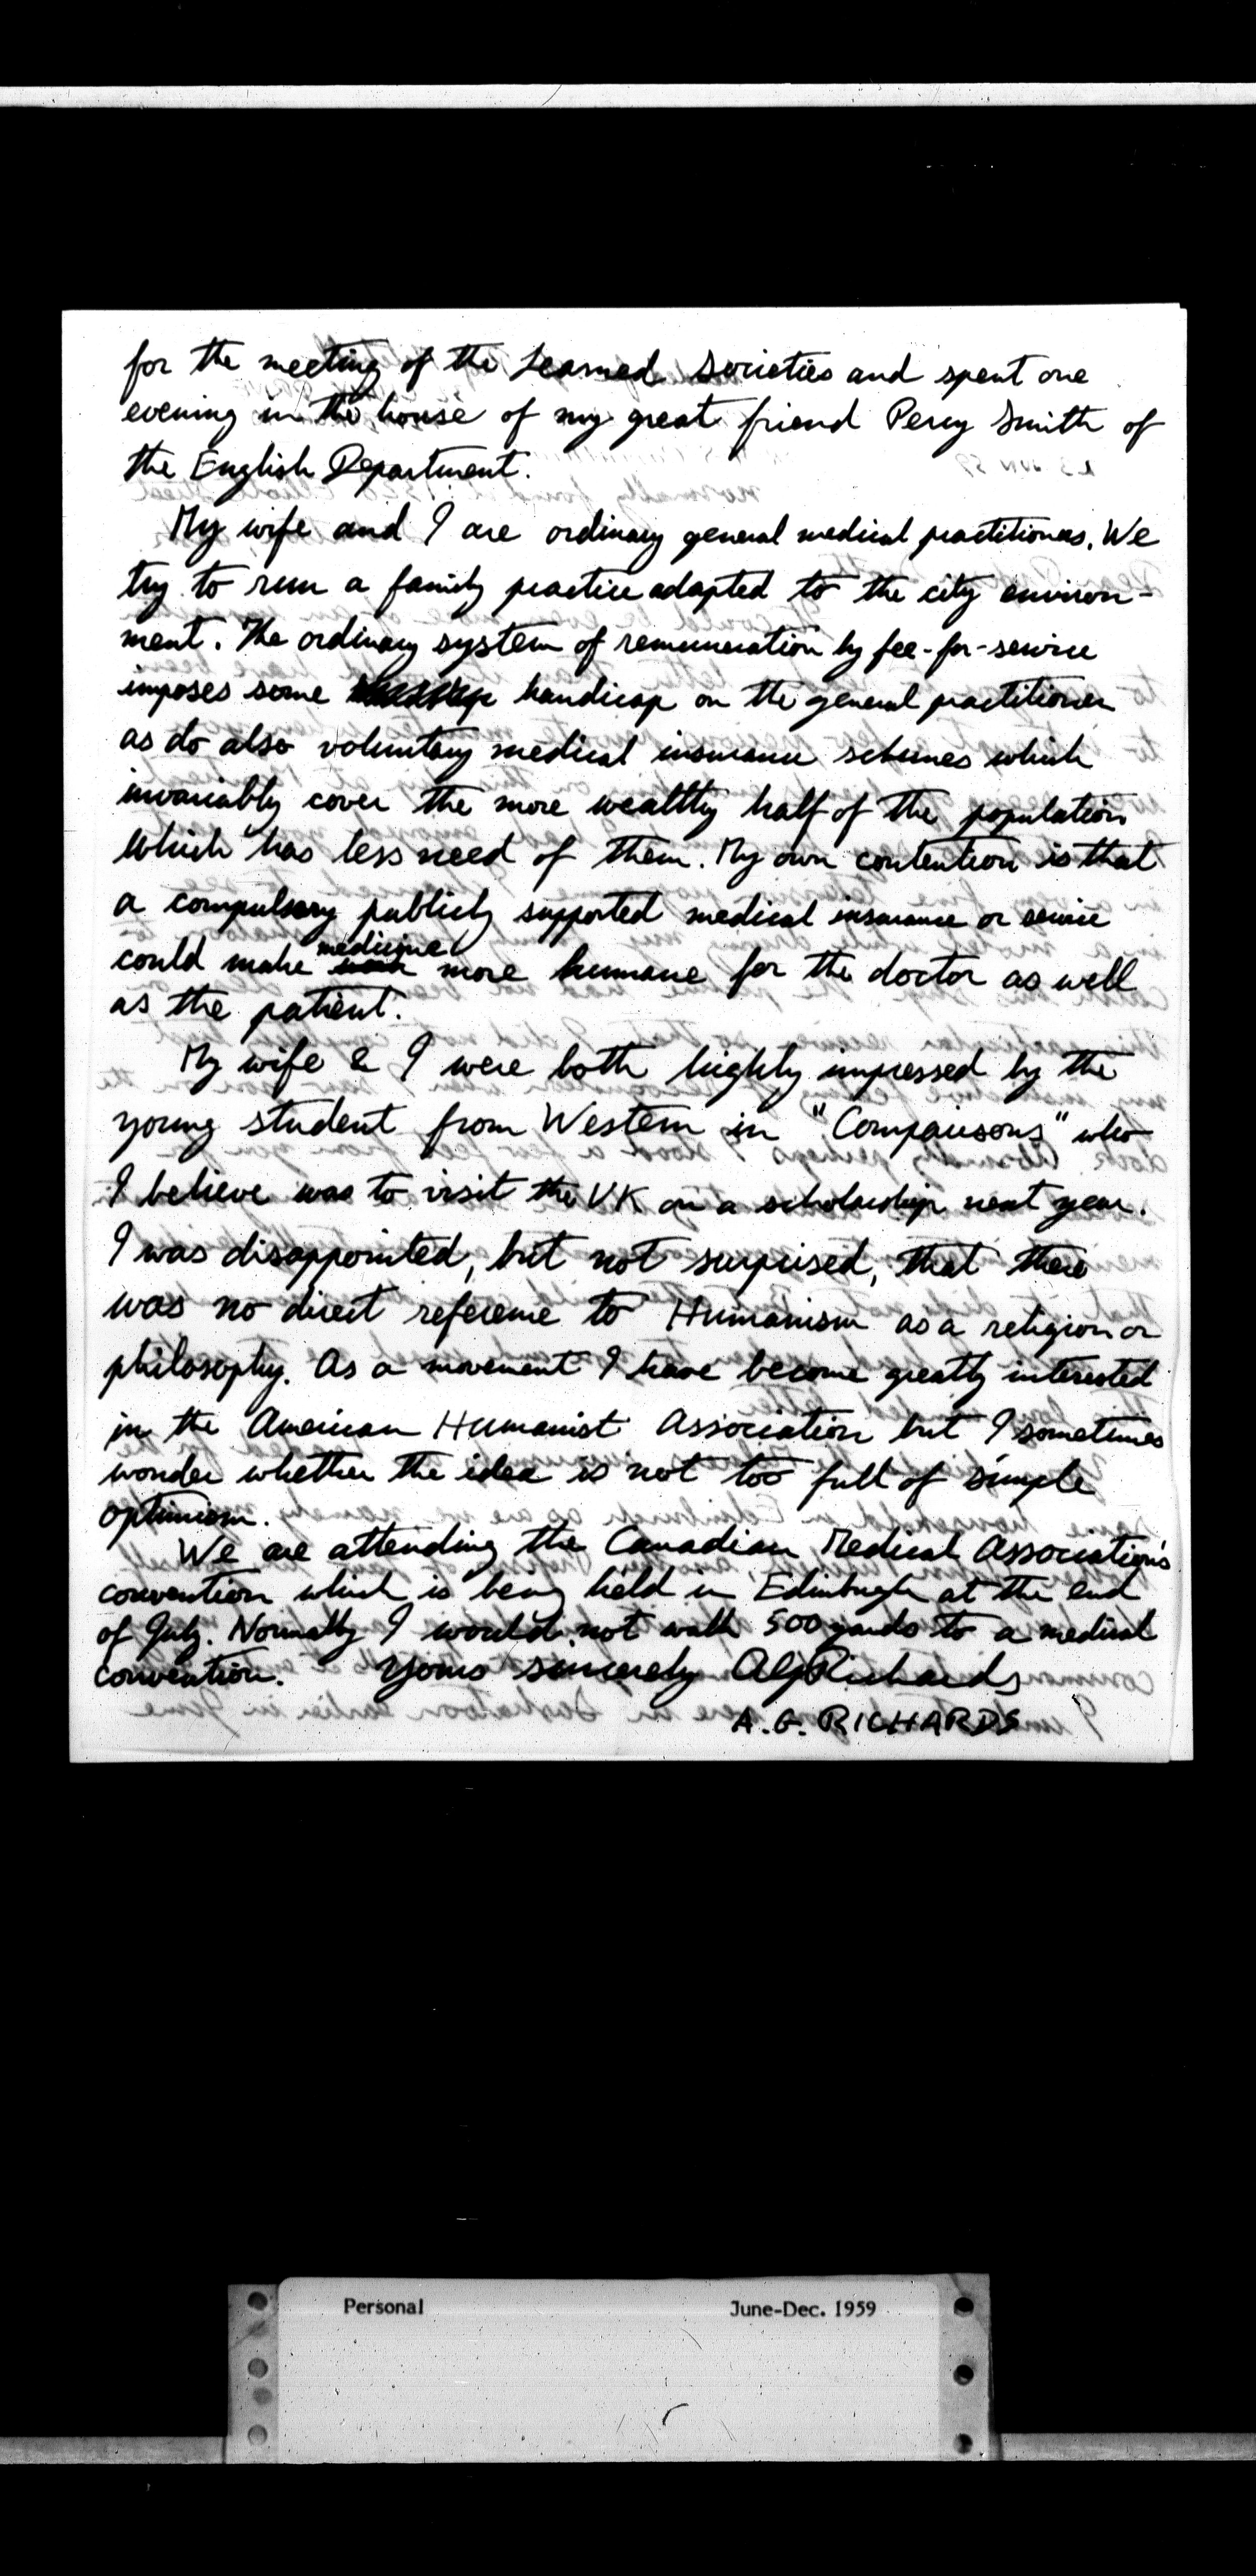 for the meeting of the Learned Societies and spent one
evening in the house of my great friend Percy Smith of
the English Department.
My wife and I are ordinary general medical practitioners. We
try to run a family practice adapted to the city environ-
ment. The ordinary system of remuneration by fee-for-service
imposes some handicap on the general practitioner
as do also voluntary medical insurance schemes which
invariably cover the more wealthy half of the population
which has less need of them. My own contention is that
a compulsory publicly supported medical insurance or service
could make medicine more humane for the doctor as well
as the patient.
My wife & I were both highly impressed by the
young student from Western in "Comparisons" who
I believe was to visit the UK on a scholarship next year.
I was disappointed, but not surprised, that there
was no direct reference to Humanism as a religion or
philosophy. As a movement I have become greatly interested
in the American Humanist Association but I sometimes
wonder whether the idea is not too full of simple
optimism.
We are attending the Canadian Medical Association's
convention which is being held in Edinburgh at the end
of July. Normally I would not walk 500 yards to a medical
convention. Yours sincerely AGRichards
A. G. RICHARDS
Personal June-Dec. 1959